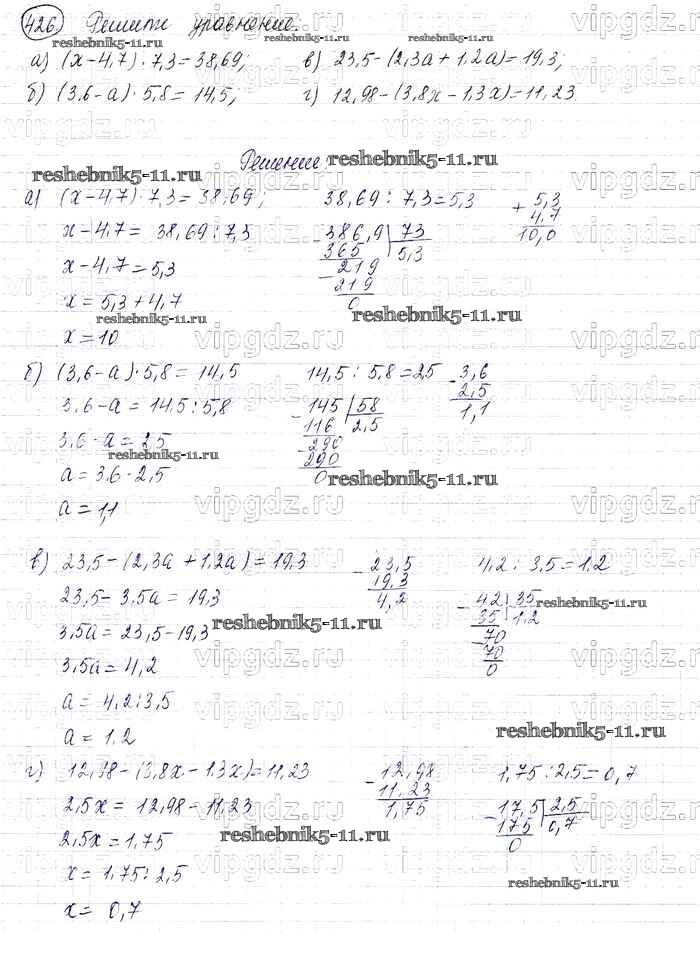 426. Решить уравнение.
reshebnik5-11.ru reshebnik5-11.ru
а) (х-4,7)·7,3=38,69; в) 23,5-(2,3а+1,2а)=19,3;
б) (3,6-а)·5,8=14,5; г) 12,98-(3,8х-1,3х)=11,23.
vipgdz.ru vipgdz.ru vipgdz.ru vipgdz.ru
Решение
reshebnik5-11.ru
reshebnik5-11.ru
а) (х-4,7)·7,3=38,69; 38,69:7,3=5,3 + 5,3
4,7
10,0
х-4,7=38,69:7,3 - 386,9 73
365 5,3
х-4,7=5,3 - 219
219
0
х=5,3+4,7
reshebnik5-11.ru reshebnik5-11.ru
х=10
vipgdz.ru vipgdz.ru vipgdz.ru vipgdz.ru
б) (3,6-а)·5,8=14,5 14,5:5,8=25 - 3,6
2,5
1,1
3,6-а=14,5:5,8 - 145 58
116 2,5
3,6-а=2,5 - 290
290
0
reshebnik5-11.ru
а=3,6-2,5
reshebnik5-11.ru
а=1,1
vipgdz.ru vipgdz.ru vipgdz.ru vipgdz.ru
в) 23,5-(2,3а+1,2а)=19,3 - 23,5 4,2:3,5=1,2
19,3
4,2
23,5-3,5а=19,3 - 42 35
35 1,2
reshebnik5-11.ru
reshebnik5-11.ru
3,5а=23,5-19,3 - 70
70
0
3,5а=4,2
vipgdz.ru vipgdz.ru vipgdz.ru vipgdz.ru
а=4,2:3,5
reshebnik5-11.ru
а=1,2
г) 12,98-(3,8х-1,3х)=11,23 - 12,98 1,75:2,5=0,7
11,23
1,75
2,5х=12,98-11,23 - 17,5 2,5
175 0,7
0
2,5х=1,75
reshebnik5-11.ru
х=1,75:2,5
reshebnik5-11.ru
х=0,7
vipgdz.ru vipgdz.ru vipgdz.ru vipgdz.ru